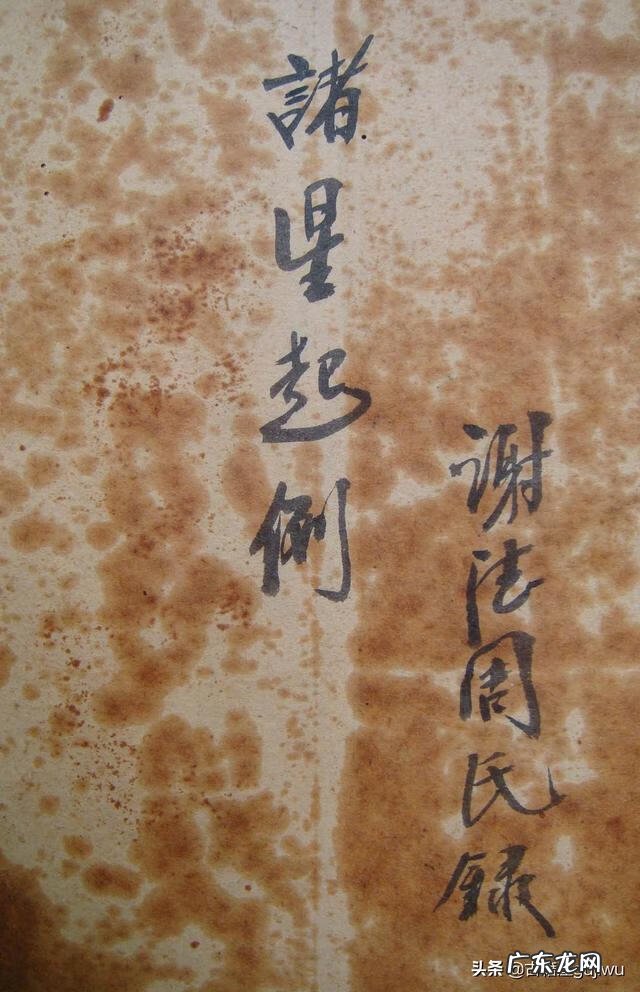 諸星起例
谢法周氏録
广东龙网
头条 @